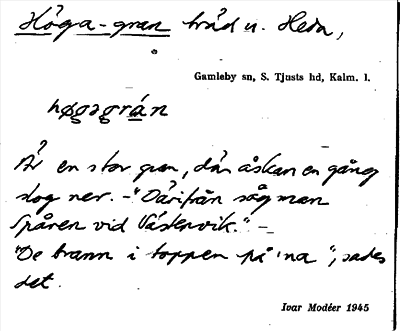 Höga-gran träd u. Heda,
Gamleby sn, S. Tjusts hd, Kalm. l.
høgagrán
Är en stor gran, där åskan en gång
slog ner. - "Därifrån såg man
spåren vid Västervik." -
"De brann i toppen på 'na", sades
det.
Ivar Modéer 1945